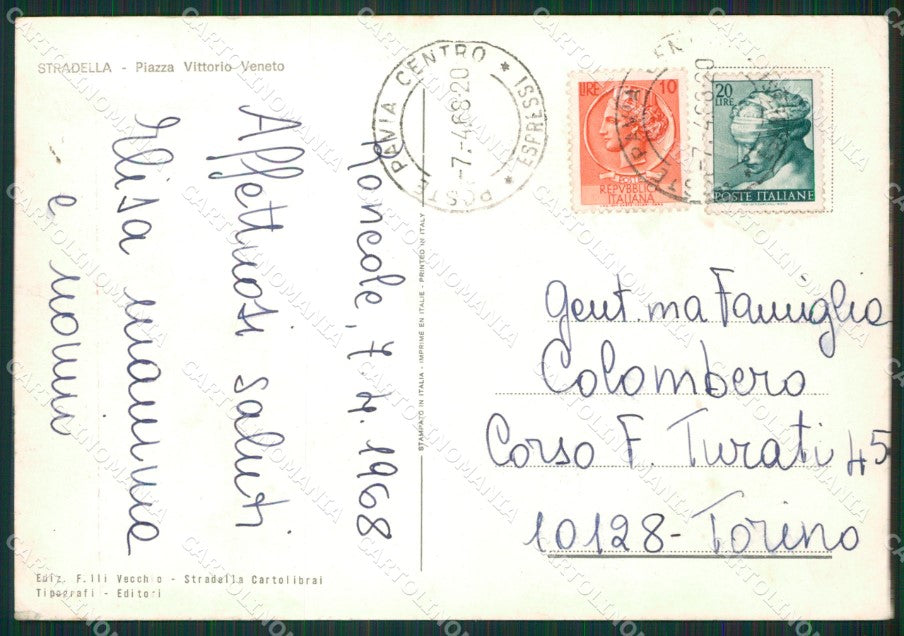 STRADELLA - Piazza Vittorio Veneto
Roncole, 7.4.1968
Affettuosi saluti
Elisa mamma
e nonni
POSTE PAVIA CENTRO * ESPRESSI *
-7.-468.20
LIRE 10
REPVBBLICA
ITALIANA
20
LIRE
POSTE ITALIANE
Gent.ma Famiglia
Colombero
Corso F. Turati 45
10128-Torino
STAMPATO IN ITALIA - IMPRIME EN ITALIE - PRINTED IN ITALY
Ediz. F.lli Vecchio - Stradella Cartolibrai
Tipografi - Editori
CARTOLINOMANIA